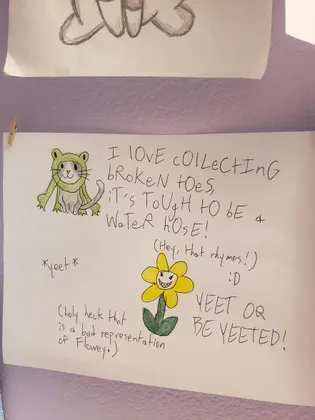 I lOVE cOllEcTInG
bROKEN tOES,
iT's TOUgH TO bE a
WaTER hOSE!
(Hey, that rhymes!)
:D
*yeet*
YEET OR
BE YEETED!
(holy heck that
is a bad representation
of Flowey.)